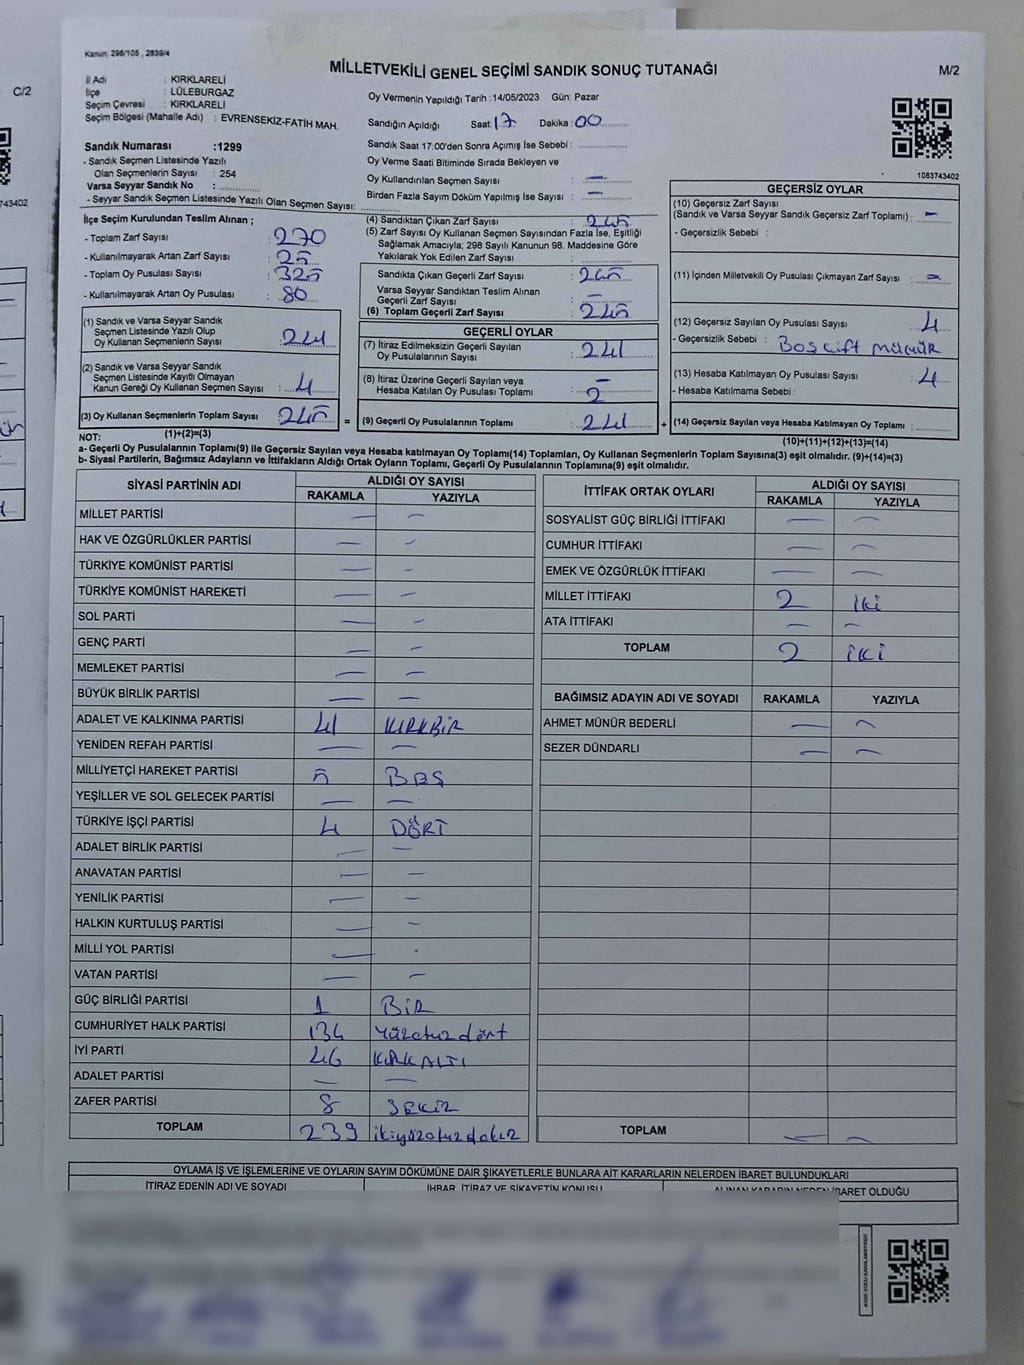 Kanun: 298/105 , 2839/4
MİLLETVEKİLİ GENEL SEÇİMİ SANDIK SONUÇ TUTANAĞI
M/2
C/2
İl Adı : KIRKLARELİ
İlçe : LÜLEBURGAZ
Seçim Çevresi : KIRKLARELİ
Seçim Bölgesi (Mahalle Adı) : EVRENSEKİZ-FATİH MAH.
Oy Vermenin Yapıldığı Tarih :14/05/2023 Gün: Pazar
Sandığın Açıldığı Saat: 17 Dakika: 00
Sandık Numarası :1299
- Sandık Seçmen Listesinde Yazılı
Olan Seçmenlerin Sayısı : 254
Varsa Seyyar Sandık No :
- Seyyar Sandık Seçmen Listesinde Yazılı Olan Seçmen Sayısı:
Sandık Saat 17:00'den Sonra Açımış İse Sebebi :
Oy Verme Saati Bitiminde Sırada Bekleyen ve
Oy Kullandırılan Seçmen Sayısı : —
Birden Fazla Sayım Döküm Yapılmış İse Sayısı : —
1083743402
743402
İlçe Seçim Kurulundan Teslim Alınan ;
- Toplam Zarf Sayısı : 270
- Kullanılmayarak Artan Zarf Sayısı : 25
- Toplam Oy Pusulası Sayısı : 325
- Kullanılmayarak Artan Oy Pusulası : 80
(1) Sandık ve Varsa Seyyar Sandık
Seçmen Listesinde Yazılı Olup
Oy Kullanan Seçmenlerin Sayısı : 241
(2) Sandık ve Varsa Seyyar Sandık
Seçmen Listesinde Kayıtlı Olmayan
Kanun Gereği Oy Kullanan Seçmen Sayısı : 4
(3) Oy Kullanan Seçmenlerin Toplam Sayısı : 245
(1)+(2)=(3)
(4) Sandıktan Çıkan Zarf Sayısı : 245
(5) Zarf Sayısı Oy Kullanan Seçmen Sayısından Fazla İse, Eşitliği
Sağlamak Amacıyla; 298 Sayılı Kanunun 98. Maddesine Göre
Yakılarak Yok Edilen Zarf Sayısı :
Sandıkta Çıkan Geçerli Zarf Sayısı : 245
Varsa Seyyar Sandıktan Teslim Alınan
Geçerli Zarf Sayısı : —
(6) Toplam Geçerli Zarf Sayısı : 245
GEÇERLİ OYLAR
(7) İtiraz Edilmeksizin Geçerli Sayılan
Oy Pusulalarının Sayısı : 241
(8) İtiraz Üzerine Geçerli Sayılan veya : —
Hesaba Katılan Oy Pusulası Toplamı 2
= (9) Geçerli Oy Pusulalarının Toplamı : 241
GEÇERSİZ OYLAR
(10) Geçersiz Zarf Sayısı
(Sandık ve Varsa Seyyar Sandık Geçersiz Zarf Toplamı) : —
- Geçersizlik Sebebi :
(11) İçinden Milletvekili Oy Pusulası Çıkmayan Zarf Sayısı : —
(12) Geçersiz Sayılan Oy Pusulası Sayısı : 4
- Geçersizlik Sebebi : Boş çift mühür
(13) Hesaba Katılmayan Oy Pusulası Sayısı : 4
- Hesaba Katılmama Sebebi :
+ (14) Geçersiz Sayılan veya Hesaba Katılmayan Oy Toplamı :
(10)+(11)+(12)+(13)=(14)
NOT:
a- Geçerli Oy Pusulalarının Toplamı(9) ile Geçersiz Sayılan veya Hesaba katılmayan Oy Toplamı(14) Toplamları, Oy Kullanan Seçmenlerin Toplam Sayısına(3) eşit olmalıdır. (9)+(14)=(3)
b- Siyasi Partilerin, Bağımsız Adayların ve İttifakların Aldığı Ortak Oyların Toplamı, Geçerli Oy Pusulalarının Toplamına(9) eşit olmalıdır.
SİYASİ PARTİNİN ADI ALDIĞI OY SAYISI
RAKAMLA YAZIYLA
MİLLET PARTİSİ — —
HAK VE ÖZGÜRLÜKLER PARTİSİ — —
TÜRKİYE KOMÜNİST PARTİSİ — —
TÜRKİYE KOMÜNİST HAREKETİ — —
SOL PARTİ — —
GENÇ PARTİ — —
MEMLEKET PARTİSİ — —
BÜYÜK BİRLİK PARTİSİ — —
ADALET VE KALKINMA PARTİSİ 41 KIRKBİR
YENİDEN REFAH PARTİSİ — —
MİLLİYETÇİ HAREKET PARTİSİ 5 BEŞ
YEŞİLLER VE SOL GELECEK PARTİSİ — —
TÜRKİYE İŞÇİ PARTİSİ 4 DÖRT
ADALET BİRLİK PARTİSİ — —
ANAVATAN PARTİSİ — —
YENİLİK PARTİSİ — —
HALKIN KURTULUŞ PARTİSİ — —
MİLLİ YOL PARTİSİ — -
VATAN PARTİSİ — —
GÜÇ BİRLİĞİ PARTİSİ 1 BİR
CUMHURİYET HALK PARTİSİ 134 Yüzotuzdört
İYİ PARTİ 46 KIRKALTI
ADALET PARTİSİ — —
ZAFER PARTİSİ 8 SEKİZ
TOPLAM 239 ikiyüzotuzdokuz
İTTİFAK ORTAK OYLARI ALDIĞI OY SAYISI
RAKAMLA YAZIYLA
SOSYALİST GÜÇ BİRLİĞİ İTTİFAKI — —
CUMHUR İTTİFAKI — —
EMEK VE ÖZGÜRLÜK İTTİFAKI — —
MİLLET İTTİFAKI 2 İki
ATA İTTİFAKI — —
TOPLAM 2 İKİ
BAĞIMSIZ ADAYIN ADI VE SOYADI RAKAMLA YAZIYLA
AHMET MÜNÜR BEDERLİ — —
SEZER DÜNDARLI — —
TOPLAM — —
OYLAMA İŞ VE İŞLEMLERİNE VE OYLARIN SAYIM DÖKÜMÜNE DAİR ŞİKAYETLERLE BUNLARA AİT KARARLARIN NELERDEN İBARET BULUNDUKLARI
İTİRAZ EDENİN ADI VE SOYADI İHBAR, İTİRAZ VE ŞİKAYETİN KONUSU ALINAN KARARIN NEDEN İBARET OLDUĞU